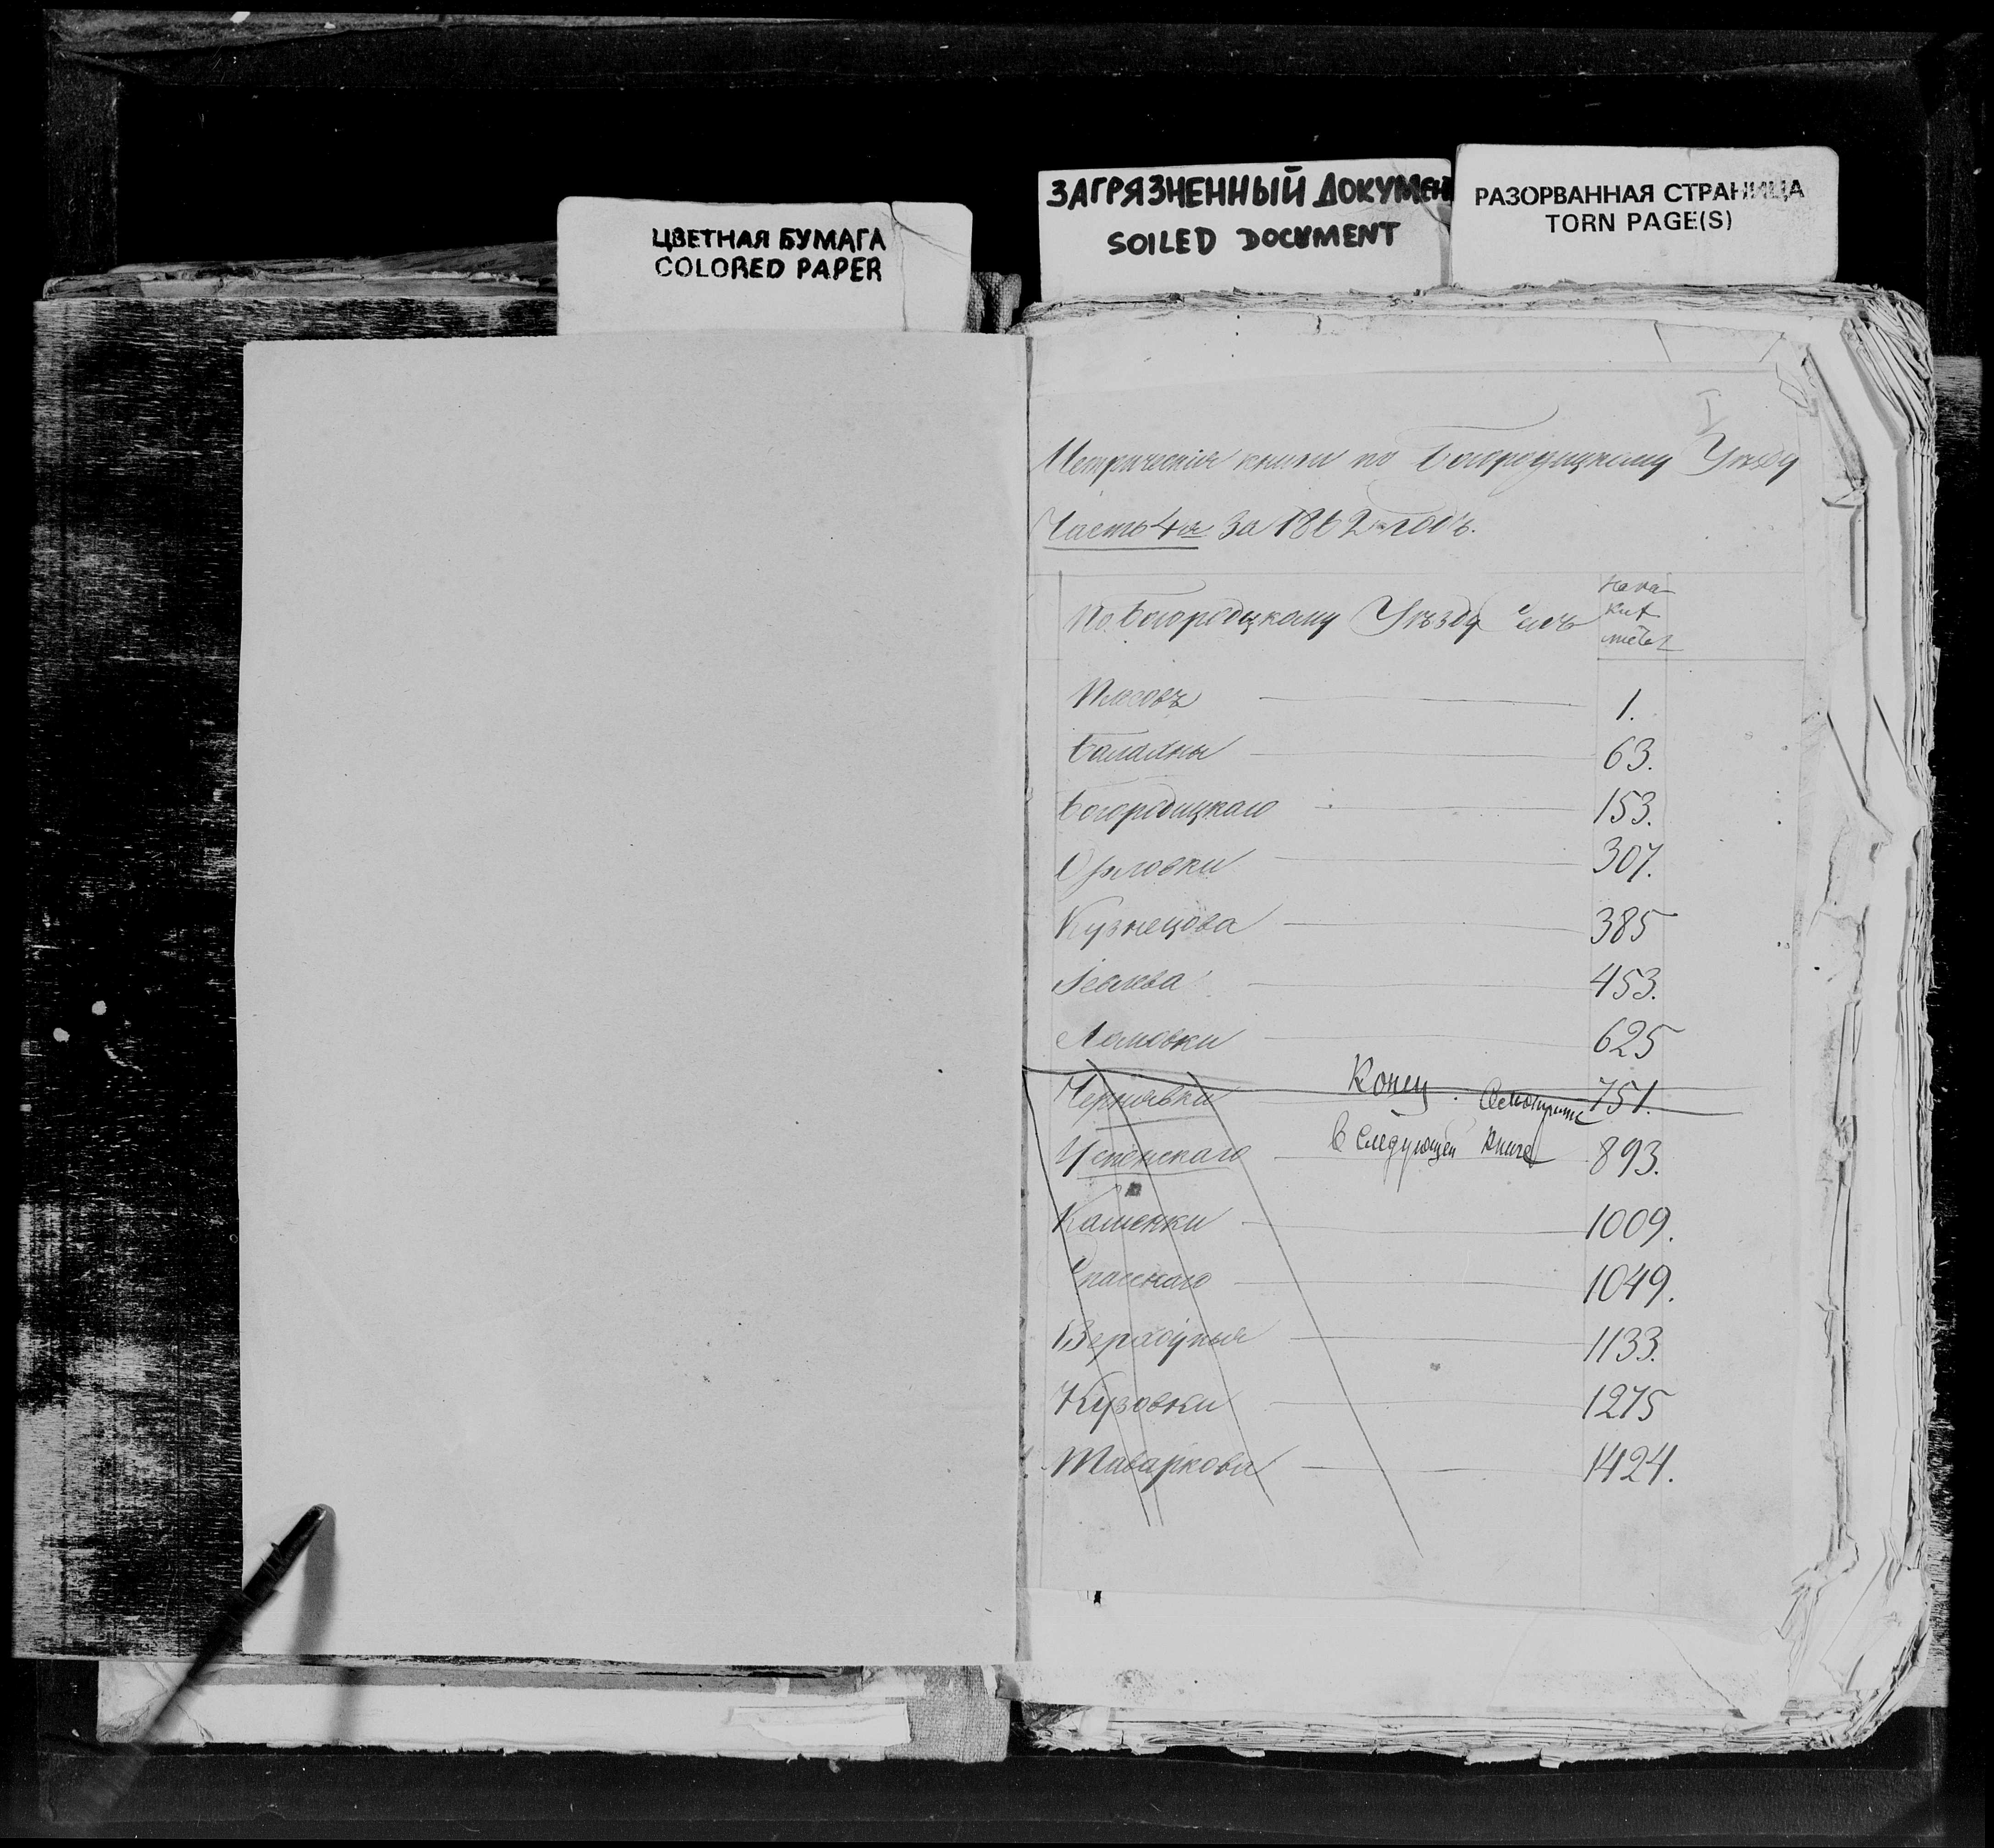 ЦВЕТНАЯ БУМАГА
COLORED PAPER
ЗАГРЯЗНЕННЫЙ ДОКУМЕН
SOILED DOCUMENT
РАЗОРВАННАЯ СТРАНИЦА
TORN PAGE(S)
I
Метрическія книги по Богородицкому Уѣзду
Часть 4я за 1862 годъ.
По Богородицкому Уѣзду Селъ
На ка-
ких
листах
1.
Балахны 63.
Богородицкаго 153.
Орловки 307.
Кузнецова 385
453.
Ломовки 625
Чернявки 751.
Конец. Смотрите
в следующей книге
Успенскаго 893.
Каменки 1009.
Спасскаго 1049.
Верхоупья 1133.
Кузовки 1275
Таваркова 1424.